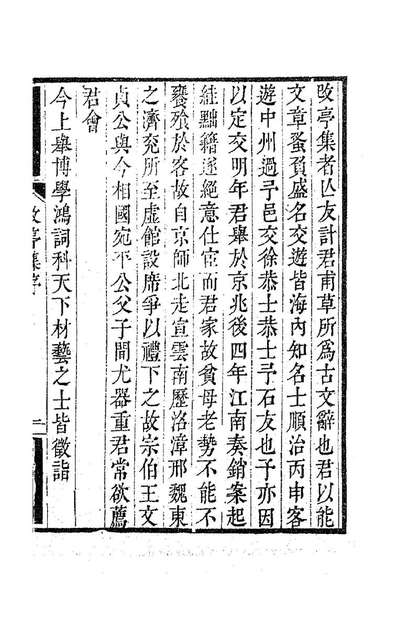 改亭集者亾友計君甫草所爲古文辭也君以能
文章蚤負盛名交遊皆海內知名士順治丙申客
遊中州過予邑交徐恭士恭士予石友也予亦因
以定交明年君舉於京兆後四年江南奏銷案起
絓黜籍遂絕意仕宦而君家故貧母老勢不能不
饔飱於客故自京師北走宣雲南歷洛漳邢魏東
之濟兖所至虛館設席爭以禮下之故宗伯王文
貞公與今相國宛平公父子間尤器重君常欲薦
君會
今上舉博學鴻詞科天下材藝之士皆徵詣
改亭集序
一